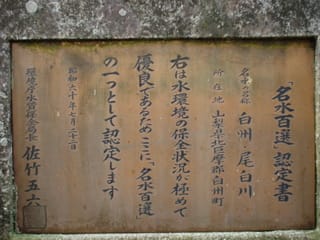 「名水百選」認定書
名水の名称 白州・尾白川
所在地 山梨県北巨摩郡白州町
右は水環境の保全状況が極めて
優良であるためここに「名水百選
の一つとして認定します
昭和六十年七月二十二日
環境庁水質保全局長 佐竹五六